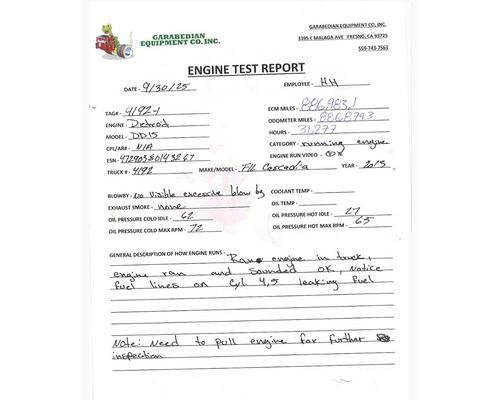 GARABEDIAN
EQUIPMENT CO. INC.
GARABEDIAN EQUIPMENT CO, INC.
3395 E MALAGA AVE FRESNO, CA 93725
559-743-7563
ENGINE TEST REPORT
DATE - 9/30/25
EMPLOYEE - HH
TAG# - 4192-1
ECM MILES - 886,983.1
ENGINE - Detroit
ODOMETER MILES -
MODEL - DD15
HOURS - 31,277
CPL/ARR - N/A
CATEGORY - running engine
ESN -
ENGINE RUN VIDEO -
TRUCK # - 4192
MAKE/MODEL - F/L Cascadia
YEAR - 2015
BLOWBY - no visible excessive blow by
COOLANT TEMP -
EXHAUST SMOKE - none
OIL TEMP -
OIL PRESSURE COLD IDLE - 62
OIL PRESSURE HOT IDLE - 27
OIL PRESSURE COLD MAX RPM - 72
OIL PRESSURE HOT MAX RPM - 65
GENERAL DESCRIPTION OF HOW ENGINE RUNS - Ran engine in truck,
engine ran and sounded OK, Notice
fuel lines on Cyl 4,5 leaking fuel
Note: Need to pull engine for further
inspection